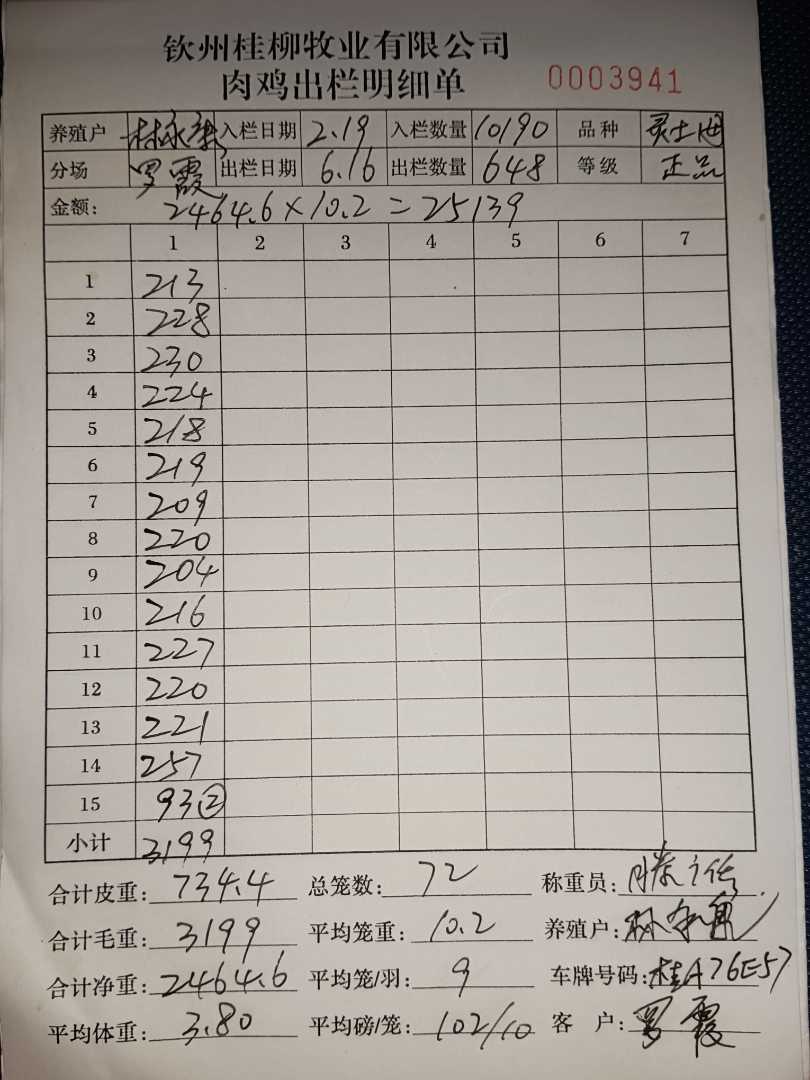 钦州桂柳牧业有限公司
肉鸡出栏明细单 0003941
养殖户 入栏日期 2.19 入栏数量 10190 品种
分场 罗霞 出栏日期 6.16 出栏数量 648 等级 正品
金额: 2464.6×10.2=25139
1 2 3 4 5 6 7
1 213
2 228
3 230
4 224
5 218
6 219
7 209
8 220
9 204
10 216
11 227
12 220
13 221
14 257
15 93②
小计 3199
合计皮重: 734.4 总笼数: 72 称重员:
合计毛重: 3199 平均笼重: 10.2 养殖户:
合计净重: 2464.6 平均笼/羽: 9 车牌号码: 桂A76E57
平均体重: 3.80 平均磅/笼: 102/10 客 户: 罗霞